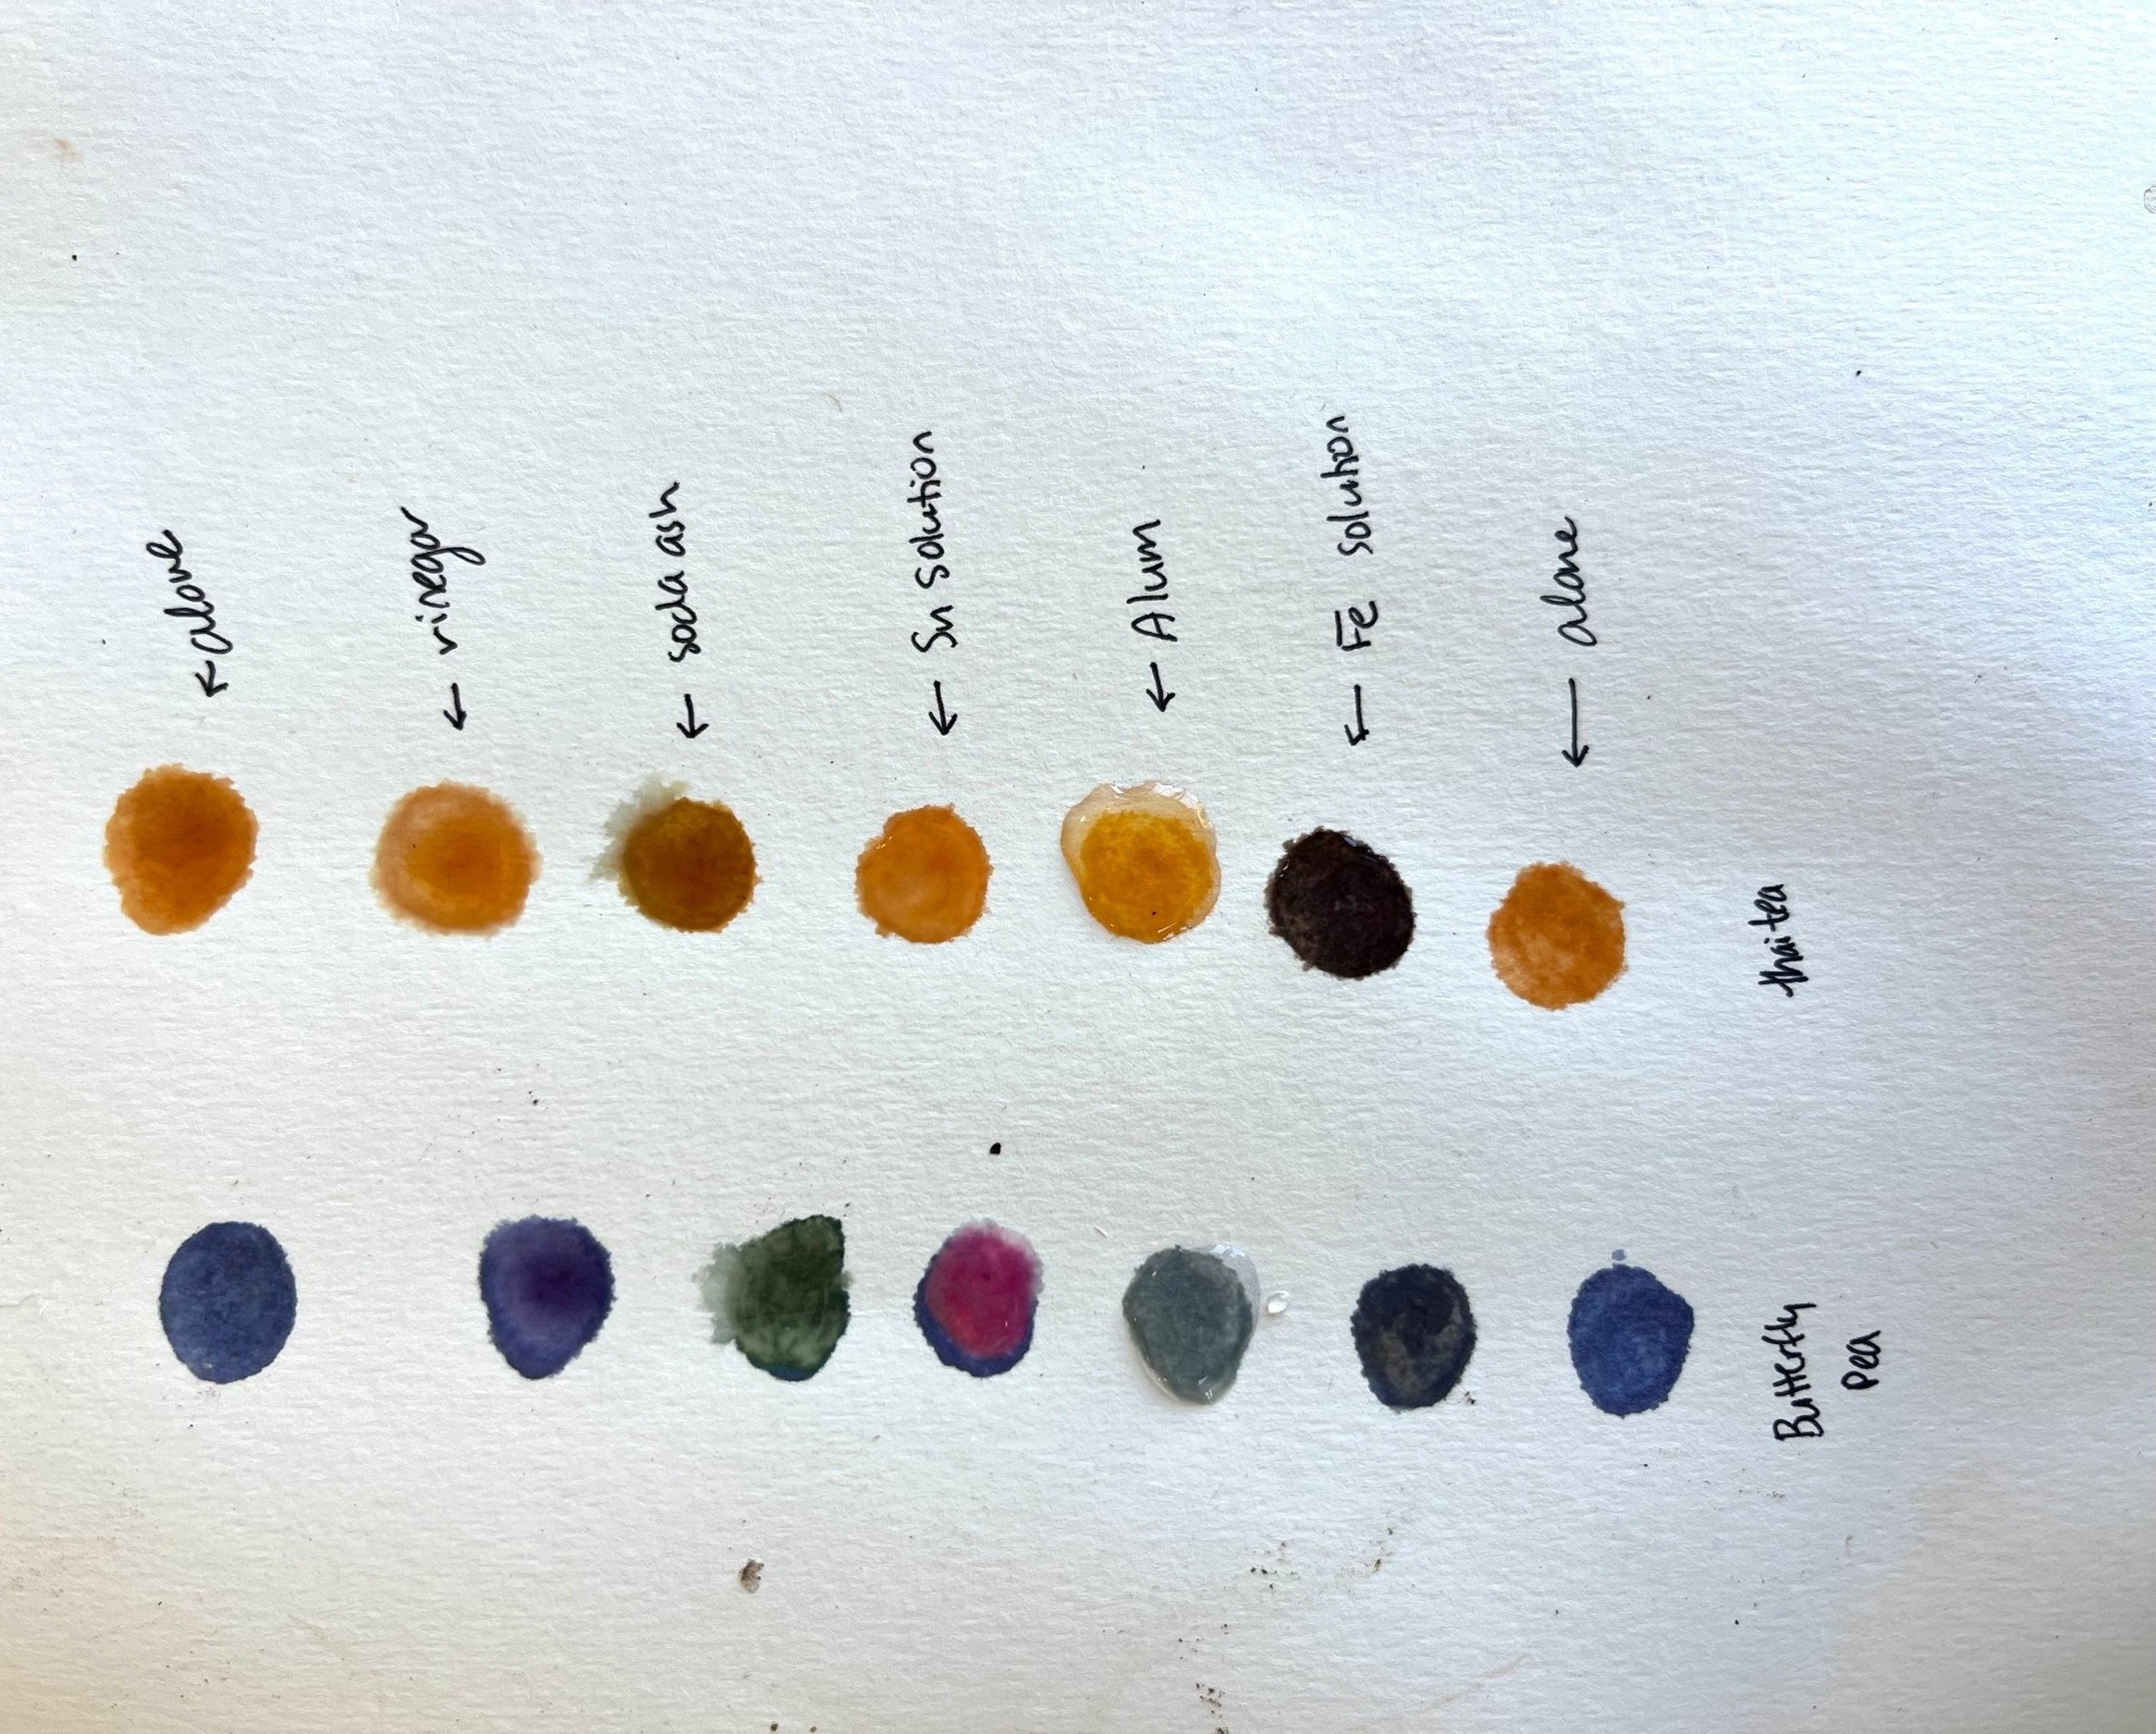 ← alone
← vinegar
← soda ash
← Sn solution
← Alum
← Fe solution
← alone
thai tea
Butterfly
Pea